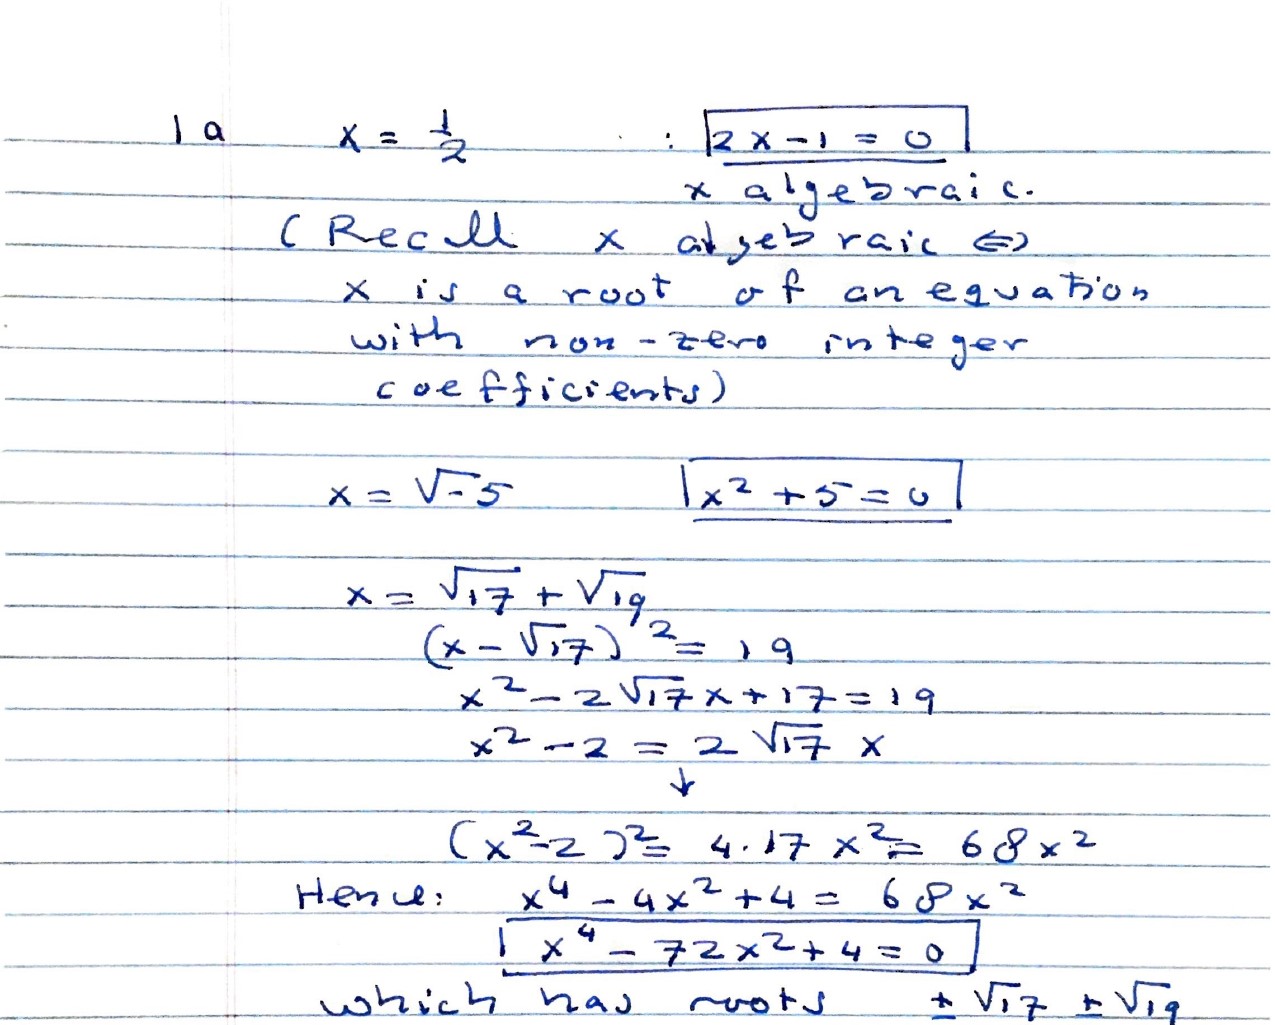 1a x = 1/2 : 2x - 1 = 0
x algebraic.
(Recall x algebraic ⇔
x is a root of an equation
with non-zero integer
coefficients)
x = √-5 x² + 5 = 0
x = √17 + √19
(x - √17)² = 19
x² - 2√17 x + 17 = 19
x² - 2 = 2√17 x
↓
(x² - 2)² = 4.17 x² = 68x²
Hence: x⁴ - 4x² + 4 = 68x²
x⁴ - 72x² + 4 = 0
which has roots ± √17 ± √19